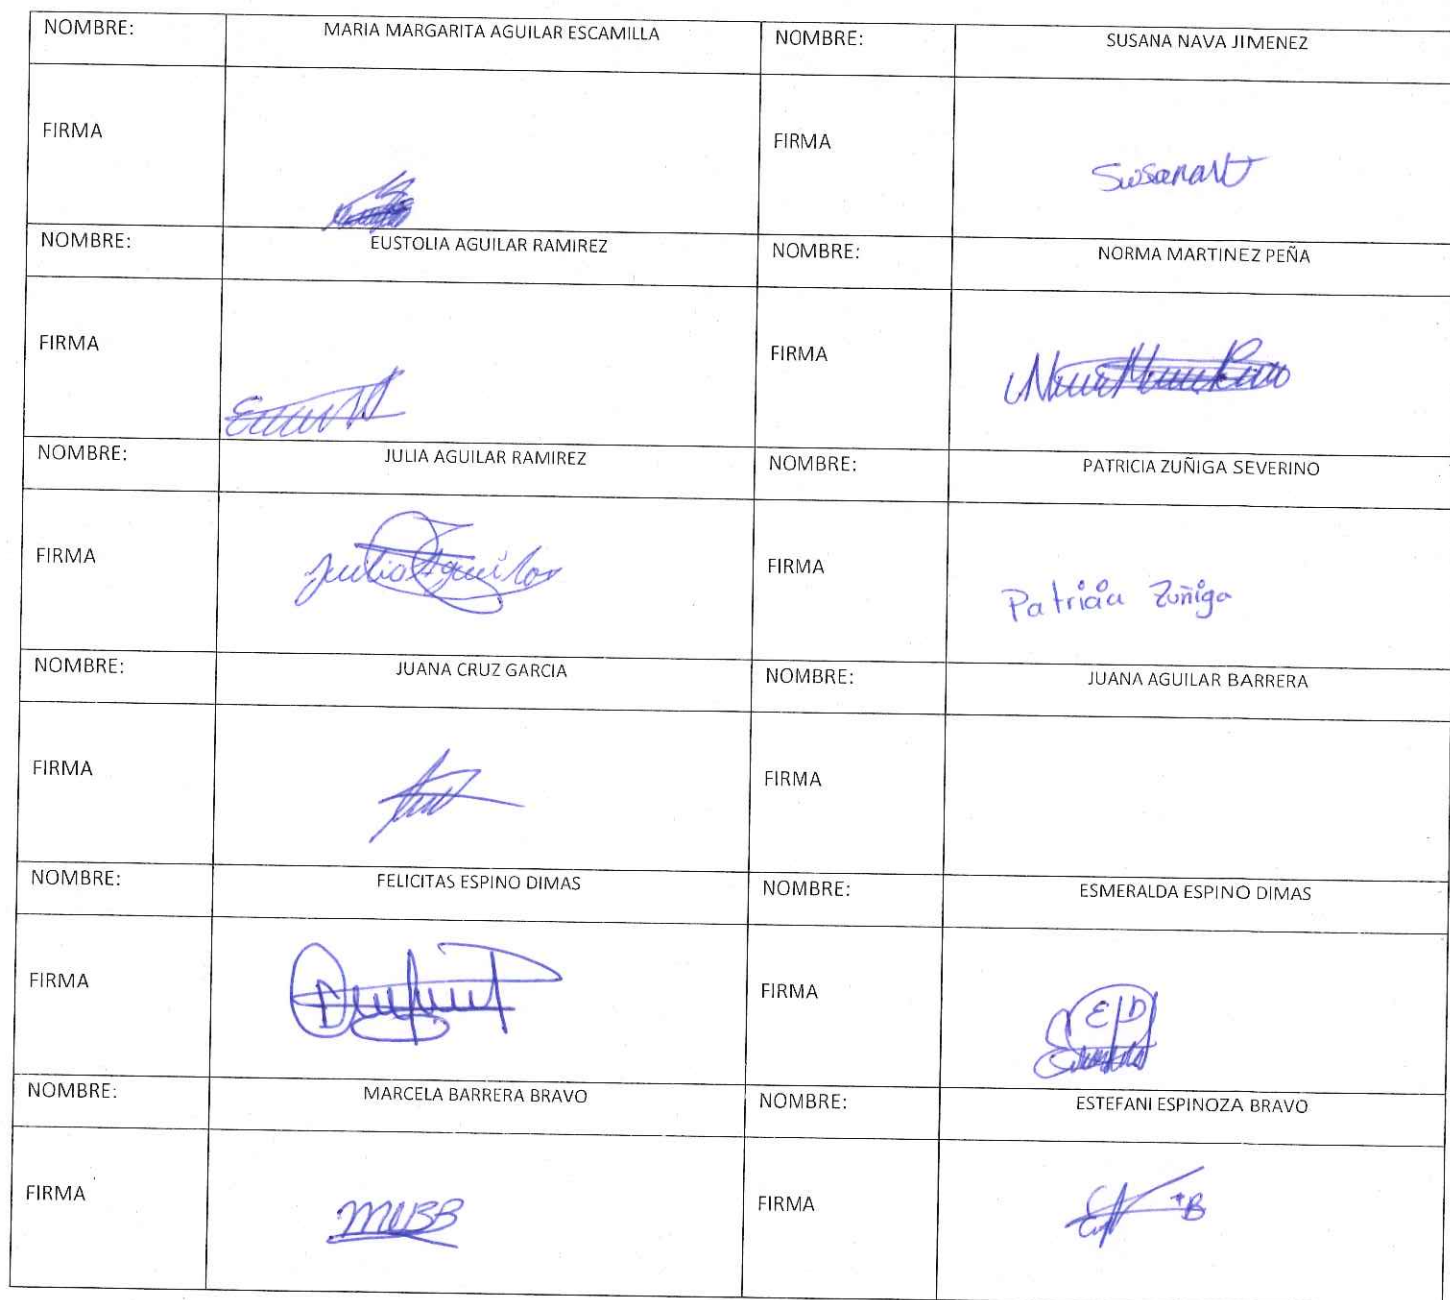 NOMBRE: MARIA MARGARITA AGUILAR ESCAMILLA NOMBRE: SUSANA NAVA JIMENEZ
FIRMA FIRMA SusanaNJ
NOMBRE: EUSTOLIA AGUILAR RAMIREZ NOMBRE: NORMA MARTINEZ PEÑA
FIRMA FIRMA
NOMBRE: JULIA AGUILAR RAMIREZ NOMBRE: PATRICIA ZUÑIGA SEVERINO
FIRMA Julia Aguilar FIRMA Patricia Zuñiga
NOMBRE: JUANA CRUZ GARCIA NOMBRE: JUANA AGUILAR BARRERA
FIRMA FIRMA
NOMBRE: FELICITAS ESPINO DIMAS NOMBRE: ESMERALDA ESPINO DIMAS
FIRMA FIRMA E D
NOMBRE: MARCELA BARRERA BRAVO NOMBRE: ESTEFANI ESPINOZA BRAVO
FIRMA FIRMA